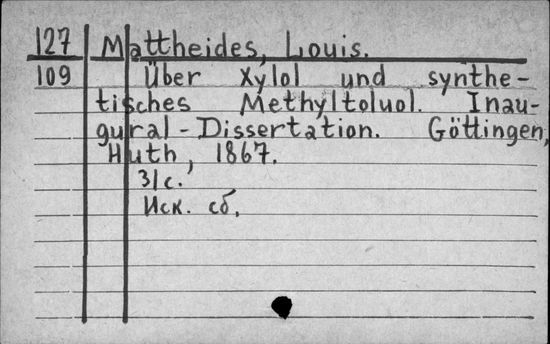 127 Mattheides, Louis.
109 Über Xylol und synthe-
tisches Methyltoluol. Inau-
gural-Dissertation. Göttingen,
Huth, 1867.
31 с.
Иск. сб.